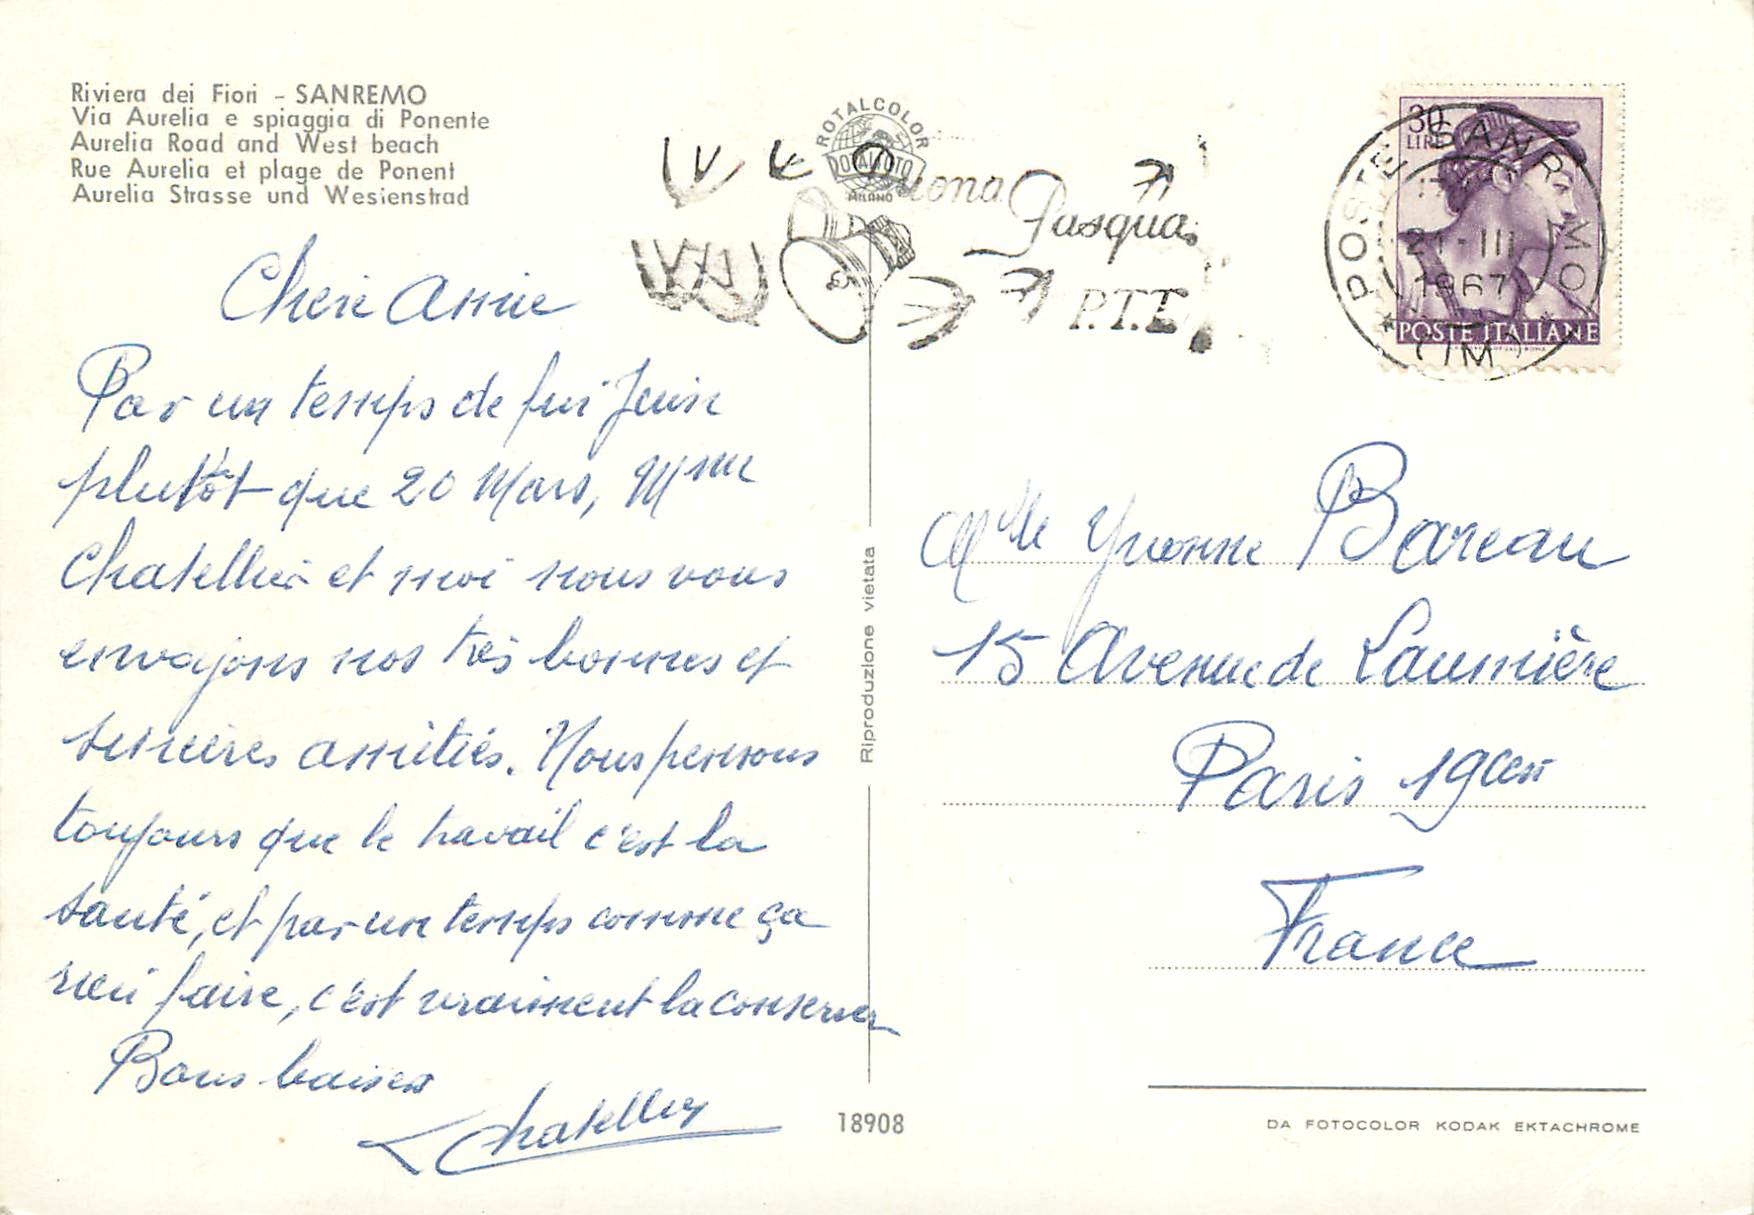 Riviera dei Fiori - SANREMO
Via Aurelia e spiaggia di Ponente
Aurelia Road and West beach
Rue Aurelia et plage de Ponent
Aurelia Strasse und Wesienstrad
ROTALCOLOR
ROTALFOTO
MILANO
Buona Pasqua
P.T.T.
30
LIRE
POSTE ITALIANE
POSTE SANREMO
21-III
1967
(IM)
Chère Amie
Par un temps de fin Juin
plutôt que 20 Mars, Mme
Chatellier et moi nous vous
envoyons nos très bonnes et
sincères amitiés. Nous pensons
toujours que le travail c'est la
santé, et par un temps comme ça
rien faire, c'est vraiment la conserver
Bons baisers
Chatellier
Riproduzione vietata
18908
Mlle Yvonne Bareau
15 Avenue de Laumière
Paris 19em
France
DA FOTOCOLOR KODAK EKTACHROME